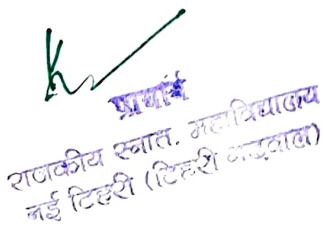 प्राचार्य
राजकीय स्नात. महाविद्यालय
नई टिहरी (टिहरी गढ़वाल)